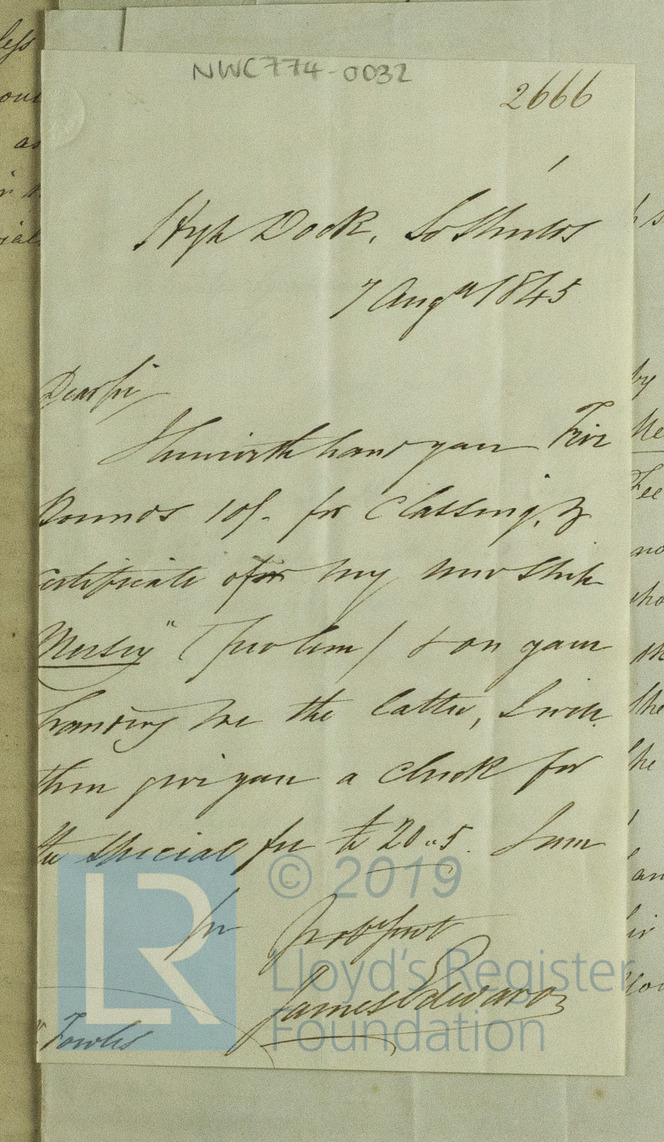 NWC774-0032
2666
High Dock, So Shields
7 Augst 1845
Dear Sir,
Herewith hand you Five
Pounds 10/- for Classing, &
certificate for my new Ship
Mersey" (pro tem) & on your
handing me the latter, I will
then give you a check for
the special fee £20..5. I am
Sir
Yr obt Servt
James Edwards
Fowles
LR
© 2019
Lloyd's Register
Foundation